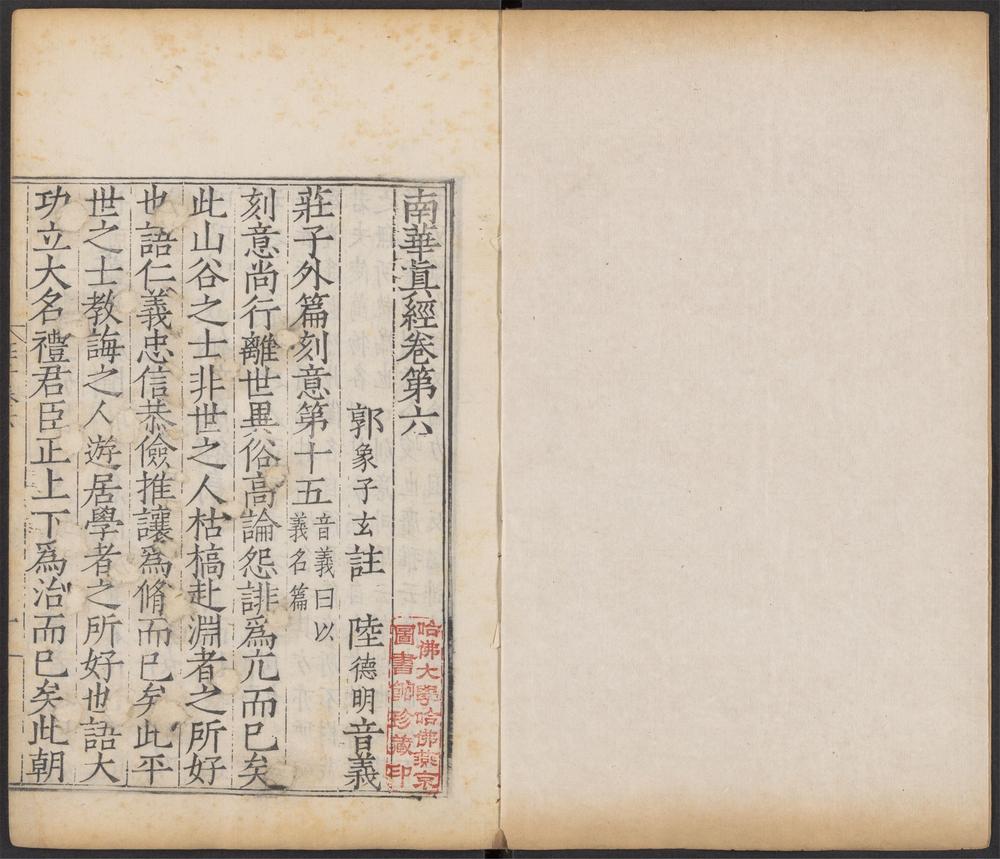 南華真經卷第六
郭象子玄註 陸德明音義
莊子外篇刻意第十五 音義曰以義名篇
刻意尚行離世異俗高論怨誹爲亢而已矣
此山谷之士非世之人枯槁赴淵者之所好
也語仁義忠信恭儉推讓爲脩而已矣此平
世之士教誨之人遊居學者之所好也語大
功立大名禮君臣正上下爲治而已矣此朝
哈佛大學哈佛燕京
圖書館珍藏印